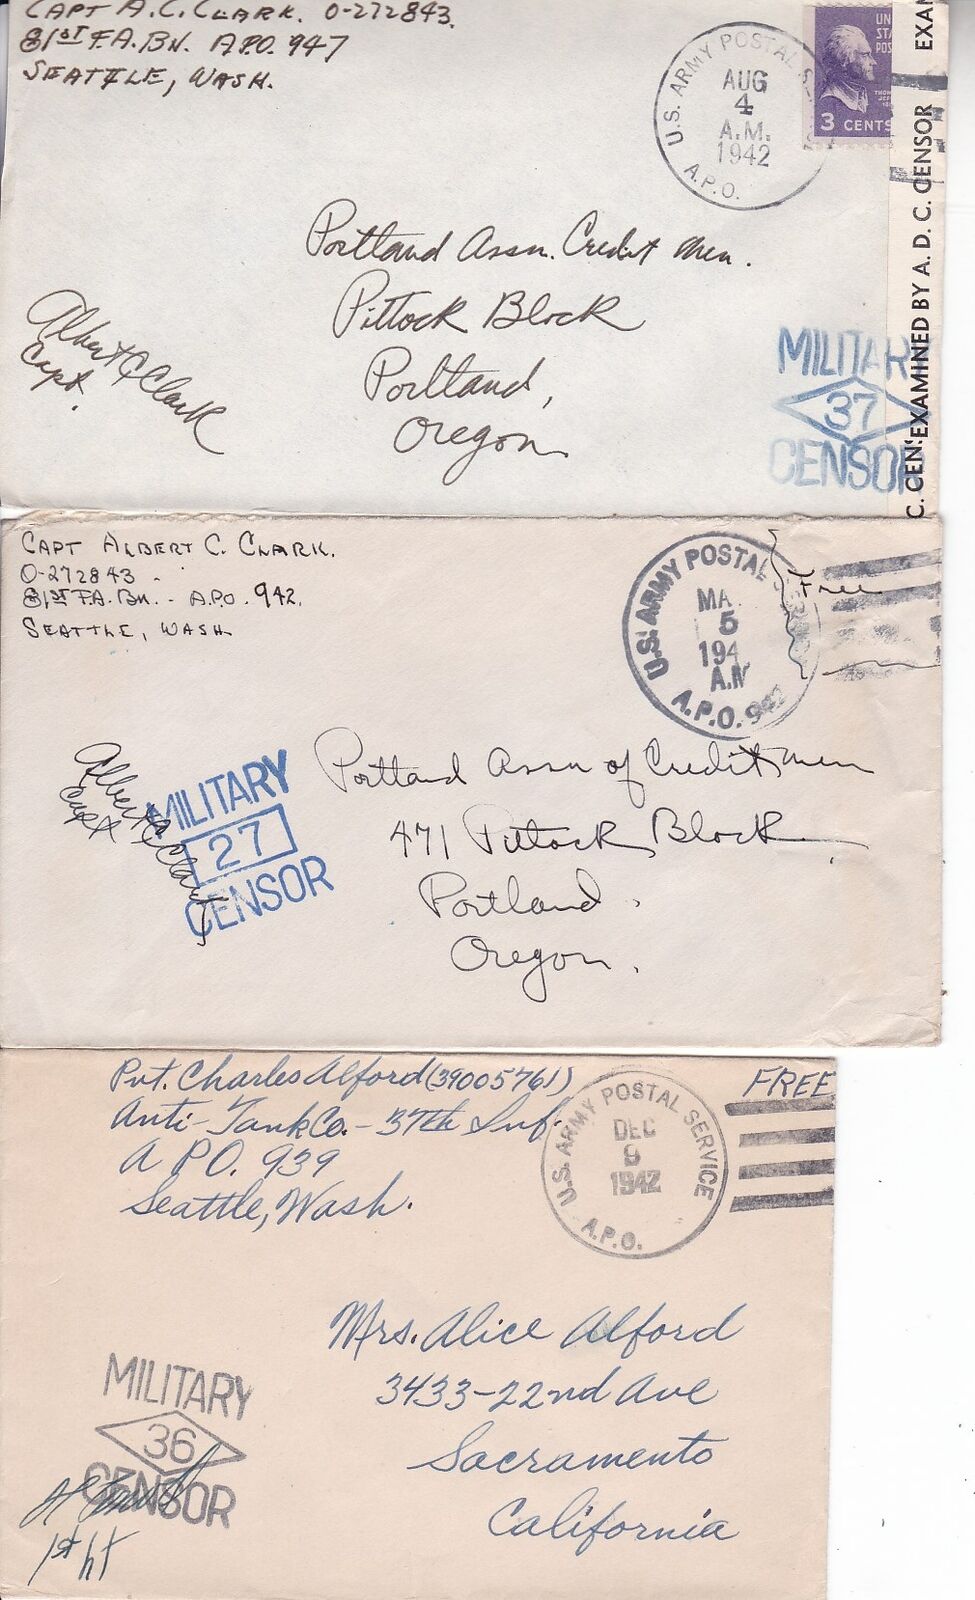 CAPT A.C. CLARK. O-272843.
81ST F.A. BN. A.P.O. 947
SEATTLE, WASH.
U.S. ARMY POSTAL
AUG
4
A.M.
1942
A.P.O.
3 CENTS
EXAMINED BY A. D. C. CENSOR
Portland Assn. Credit Men.
Pittock Block
Portland,
Oregon
Albert C Clark
Capt.
MILITARY
37
CENSOR
CAPT ALBERT C. CLARK.
O-272843 -
81ST F.A. BN. - A.P.O. 942.
SEATTLE, WASH
U.S. ARMY POSTAL SERVICE
5
A.M
A.P.O. 942
Free
Albert C Clark
Capt
MILITARY
27
CENSOR
Portland Assn of Credit Men
471 Pittock Block
Portland.
Oregon.
Pvt. Charles Alford (39005761)
Anti-Tank Co. - 37th Inf.
A PO. 939
Seattle, Wash.
U.S. ARMY POSTAL SERVICE
DEC
1942
A.P.O.
FREE
Mrs. Alice Alford
3433-22nd Ave
Sacramento
California
MILITARY
36
CENSOR
1st Lt